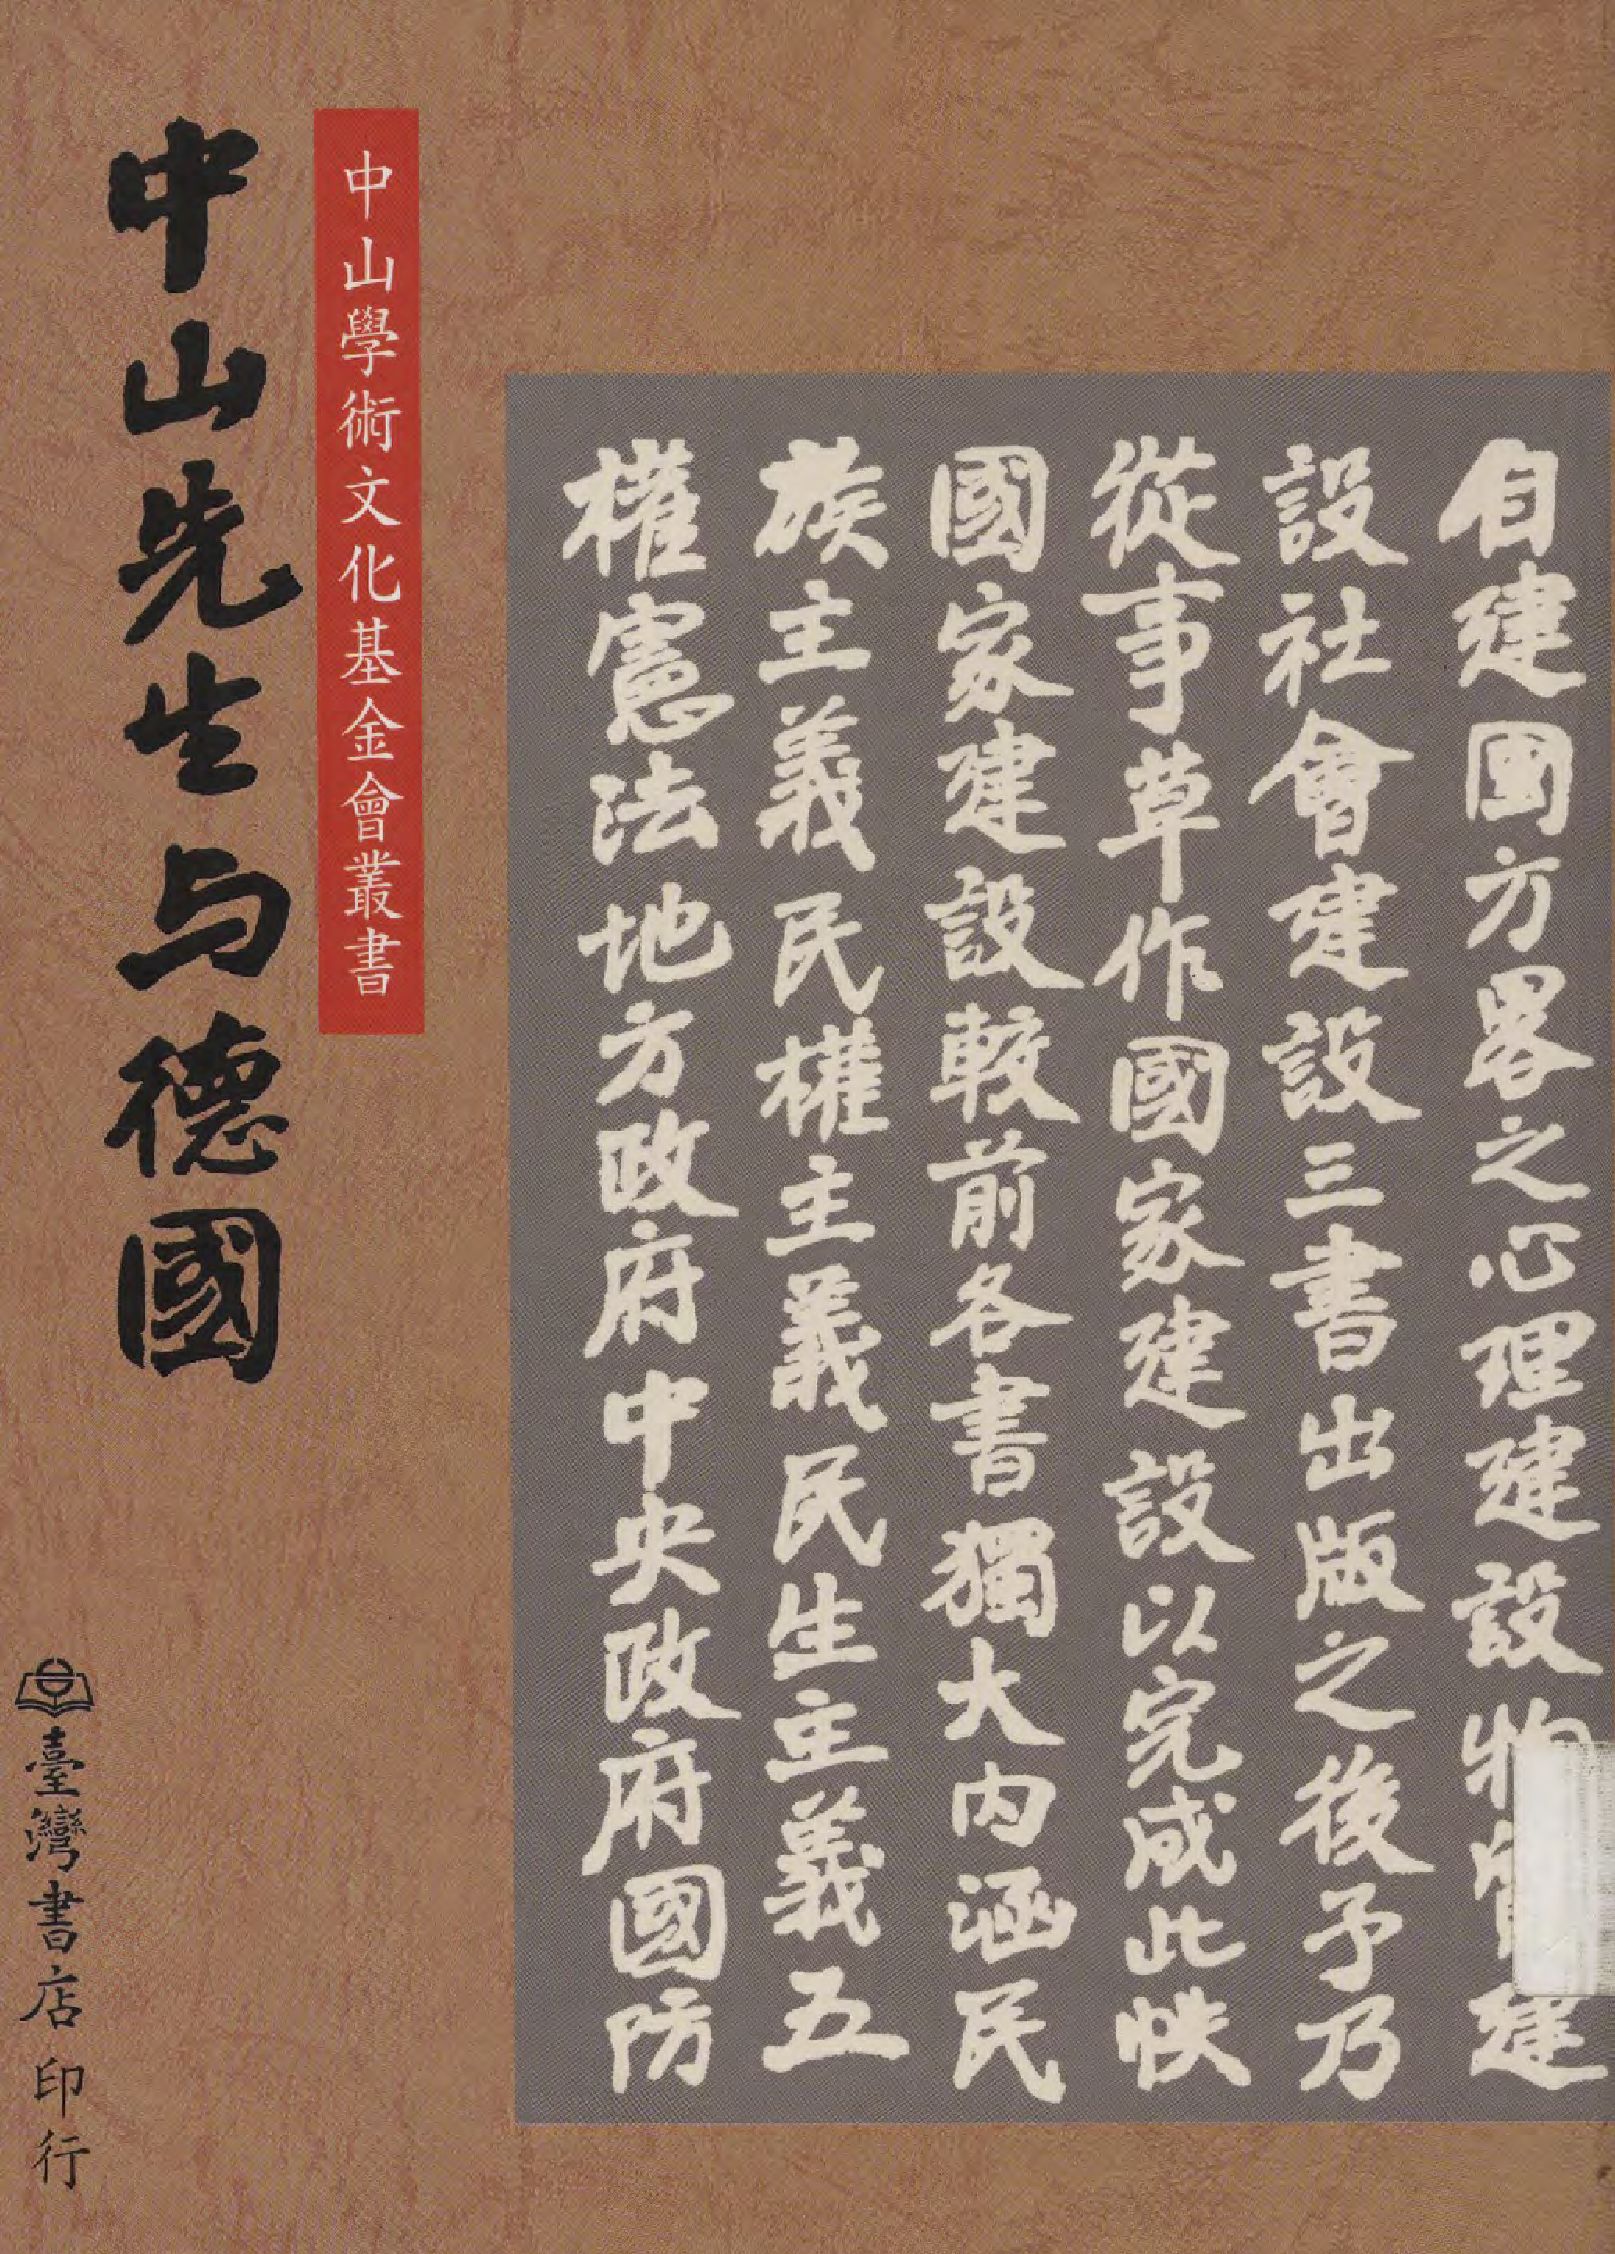 自建國方畧之心理建設物建
設社會建設三書出版之後予乃
從事草作國家建設以完成此帙
國家建設較前各書獨大內涵民
族主義民權主義民生主義五
權憲法地方政府中央政府國防
中山學術文化基金會叢書
中山先生与德國
臺灣書店印行